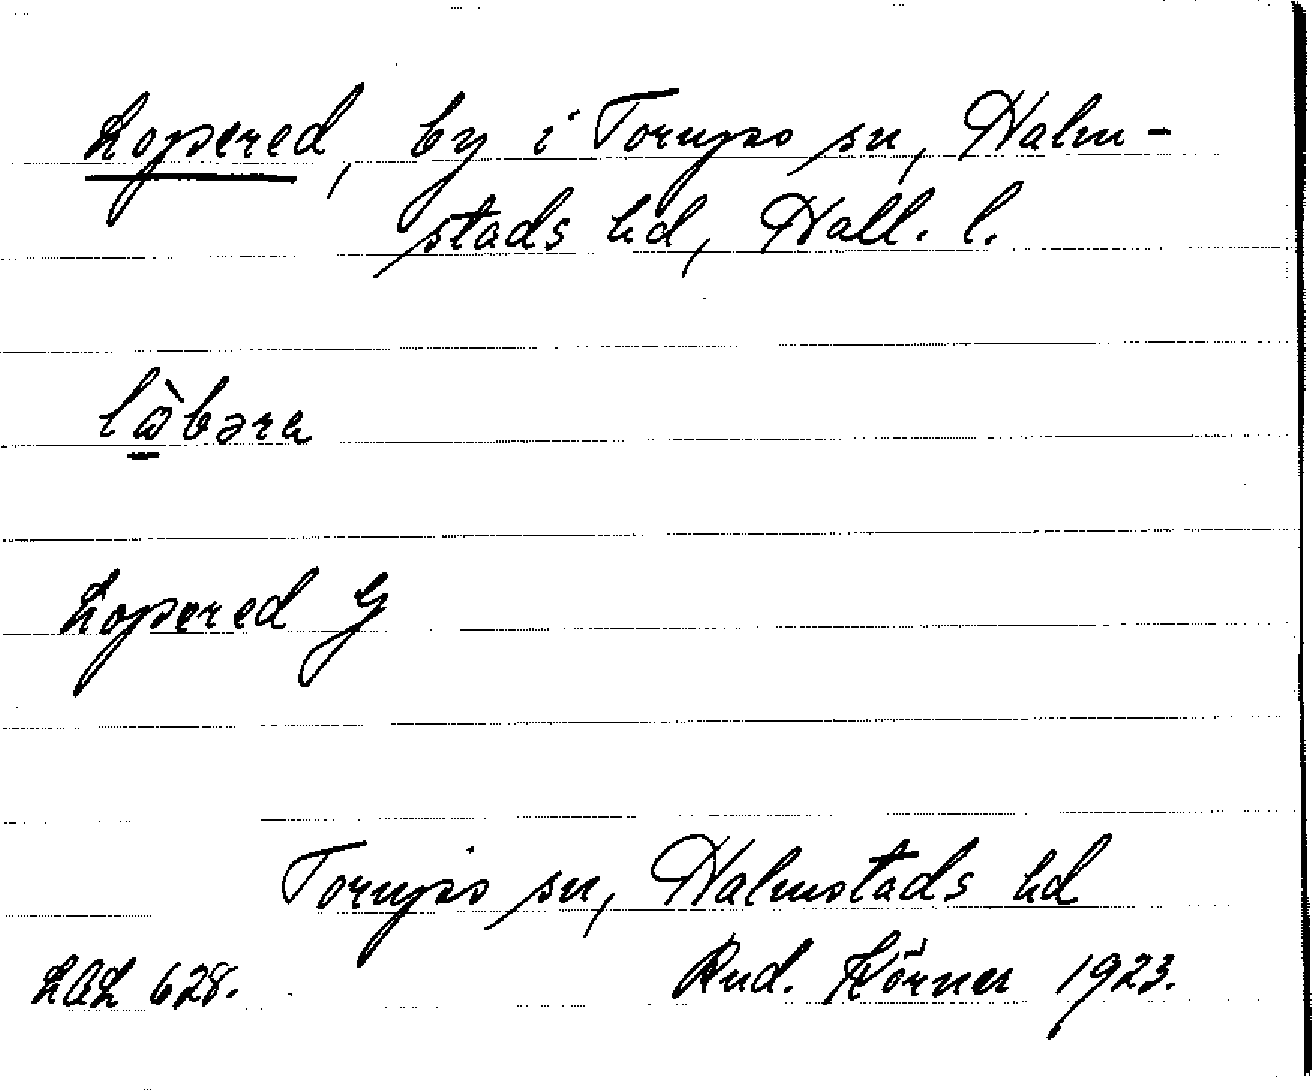 Lopered, by i Torups sn, Halm-
stads hd, Hall. l.
lὼbəra
Lopered G
Torups sn, Halmstads hd
LAL 628. Rud. Körner 1923.